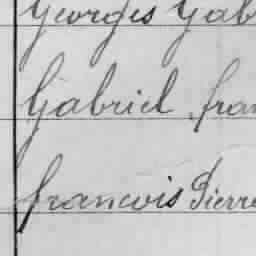 Georges Gab
Gabriel fran
francois Pierre